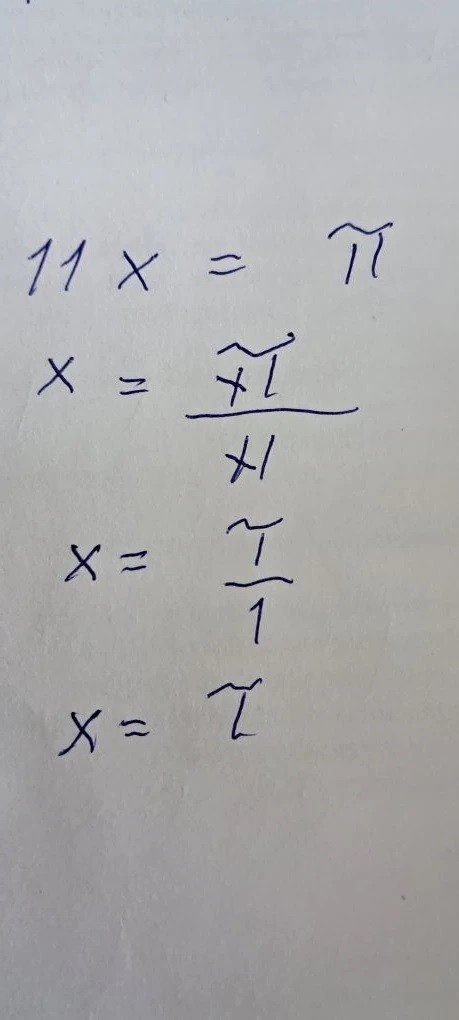 11x = π
x = π/11
x = τ/1
x = τ